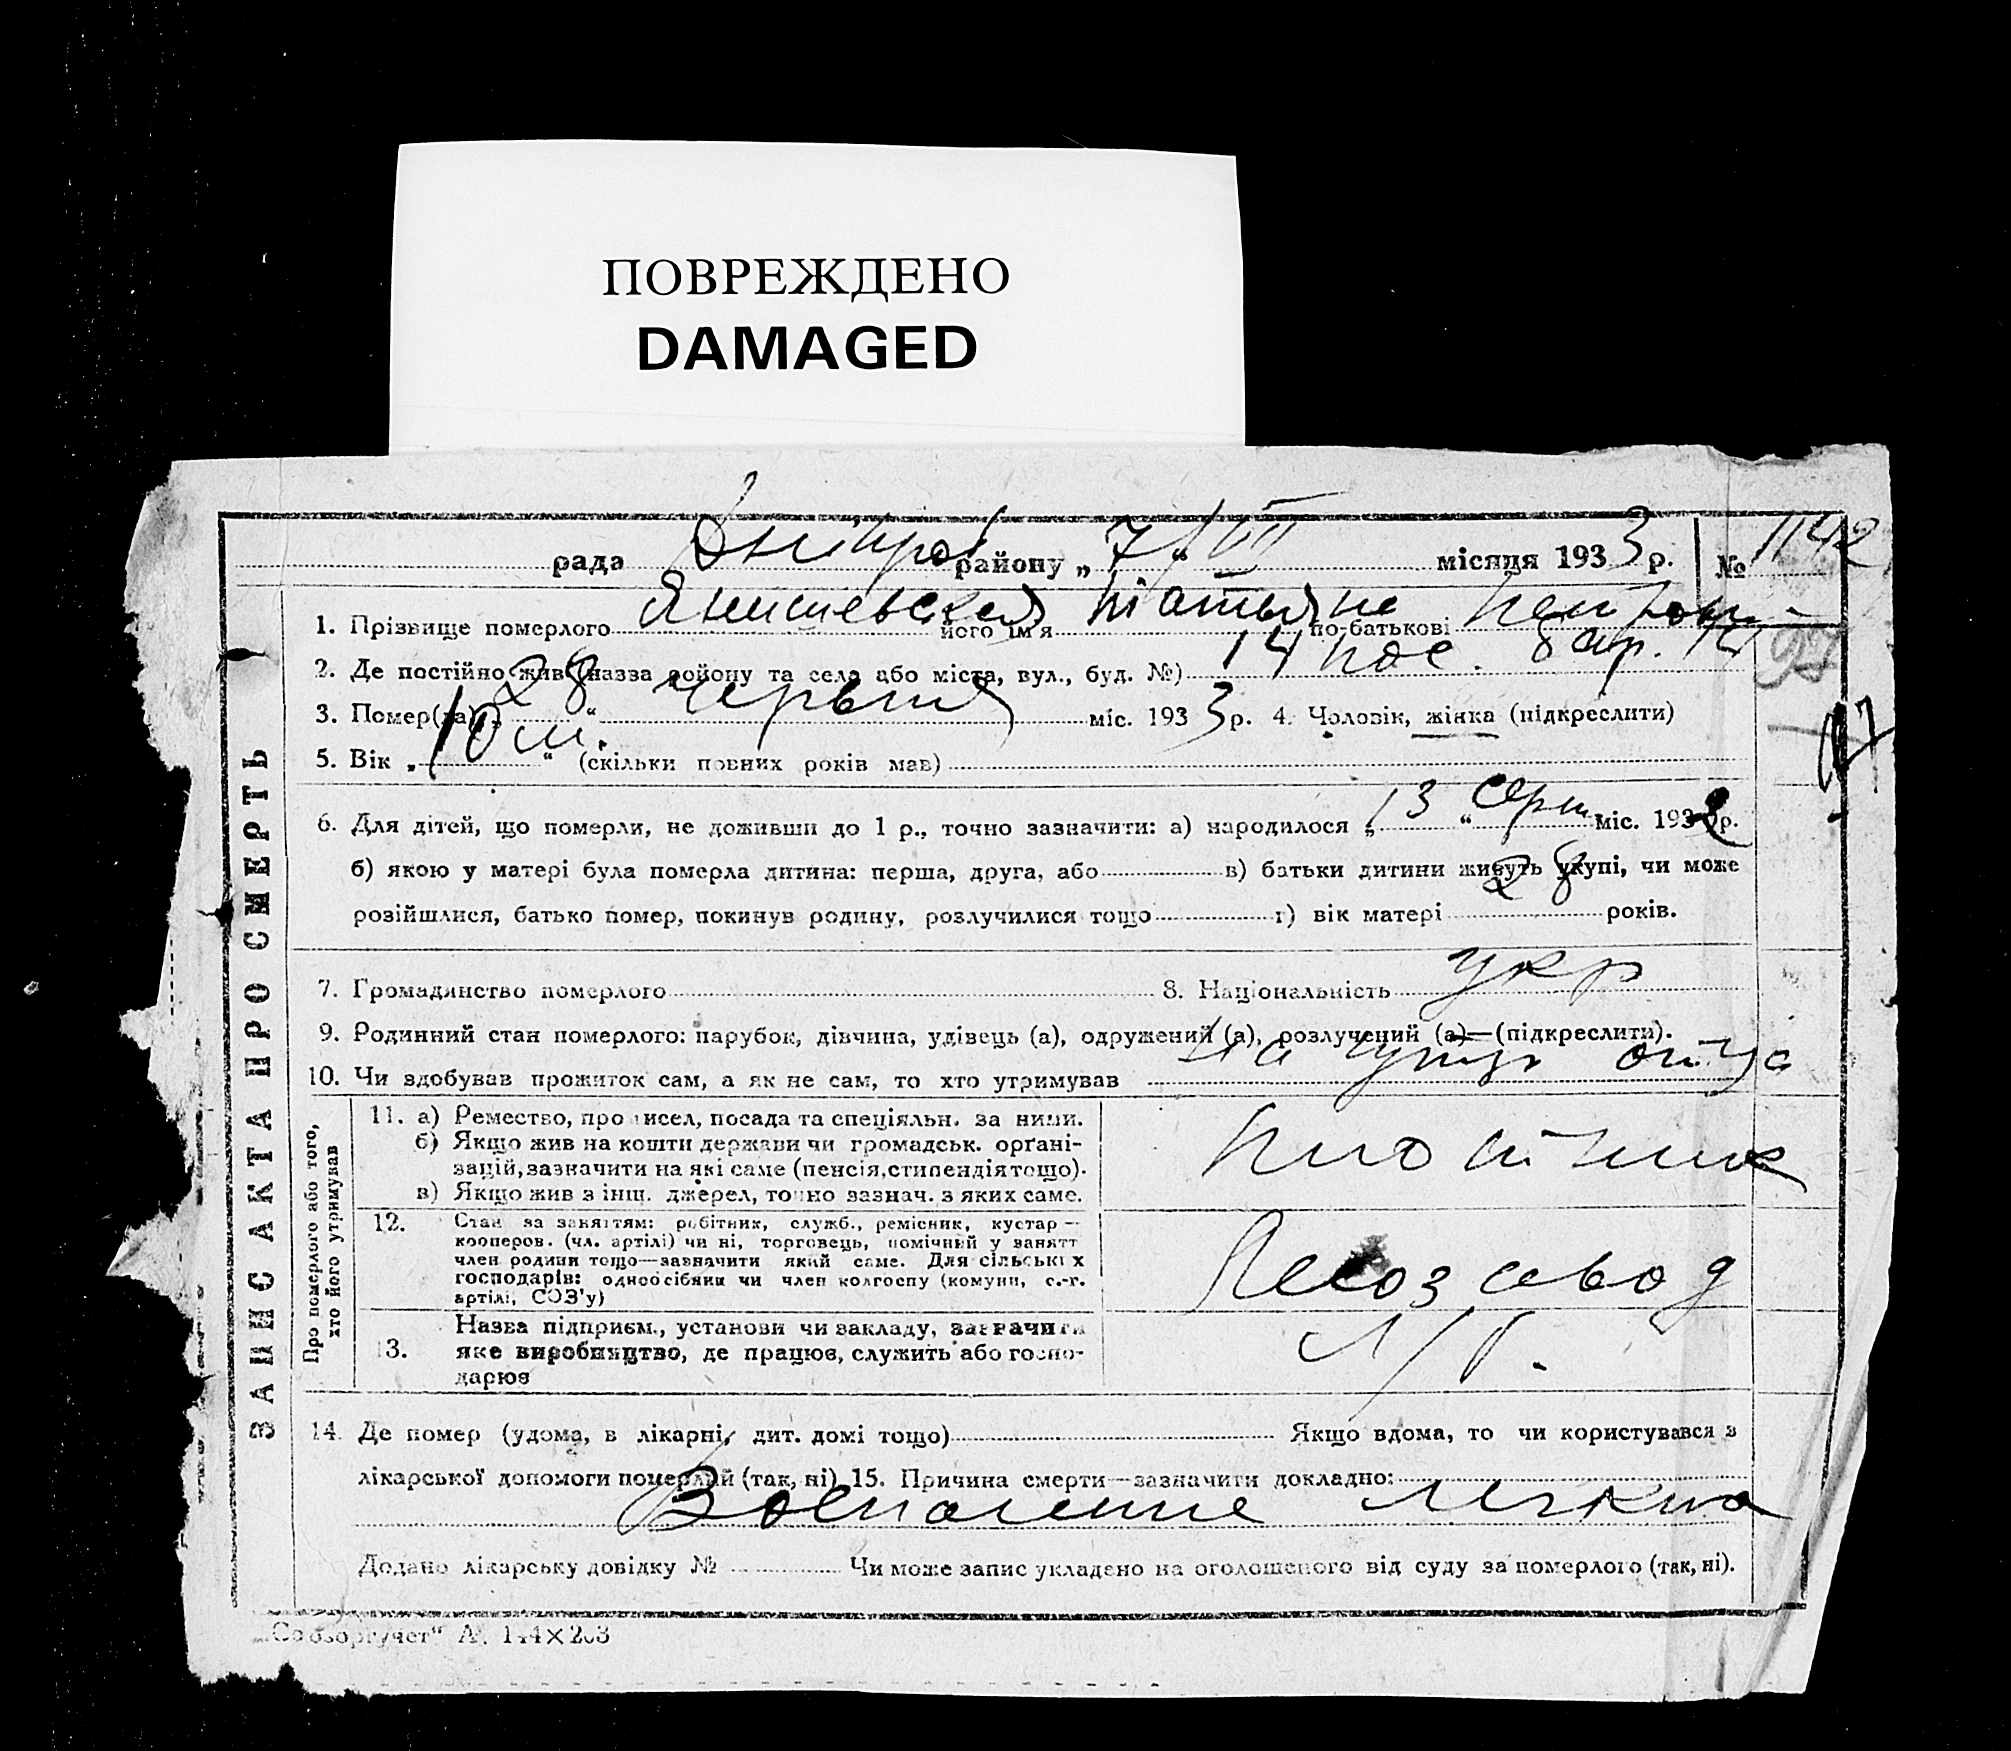 ПОВРЕЖДЕНО
DAMAGED
рада Дніпров району „ 7 “ VII місяця 1933 р. № 1142
1. Прізвище померлого Янишевская його ім'я Татьяна по-батькові Петров
2. Де постійно жив (назва району та села або міста, вул., буд. №) 14 пос. бар. 14
3. Помер(ла) „ 28 “ червня міс. 1933 р. 4. Чоловік, жінка (підкреслити)
5. Вік „ 10 м. “ (скільки повних років мав)
6. Для дітей, що померли, не доживши до 1 р., точно зазначити: а) народилося „ 13 “ серп міс. 1932 р.
б) якою у матері була померла дитина: перша, друга, або в) батьки дитини живуть укупі, чи може
розійшлися, батько помер, покинув родину, розлучилися тощо г) вік матері 28 років.
7. Громадянство померлого 8. Національність укр
9. Родинний стан померлого: парубок, дівчина, удівець (а), одружений (а), розлучений (а)—(підкреслити).
10. Чи здобував прожиток сам, а як не сам, то хто утримував на утр отца
ЗАПИС АКТА ПРО СМЕРТЬ
Про померлого або того, хто його утримував
11. а) Ремество, промисел, посада та спеціяльн. за ними.
б) Якщо жив на кошти держави чи громадськ. орґані-
зацій, зазначити на які саме (пенсія, стипендія тощо).
в) Якщо жив з інш. джерел, точно зазнач. з яких саме.
плотник
12. Стан за заняттям: робітник, служб., ремісник, кустар —
кооперов. (чл. артілі) чи ні, торговець, помічний у занятт
член родини тощо—зазначити який саме. Для сільських
господарів: одноосібник чи член колгоспу (комуни, с.-г.
артілі, СОЗ'у)
Лесозавод
13. Назва підприєм., установи чи закладу, зазначити
яке виробництво, де працюв, служить або госпо-
дарює
14. Де помер (удома, в лікарні, дит. домі тощо) Якщо вдома, то чи користувався з
лікарської допомоги померлий (так, ні) 15. Причина смерти—зазначити докладно:
Воспаление легких
Додано лікарську довідку № Чи може запис укладено на оголошеного від суду за померлого (так, ні).
97